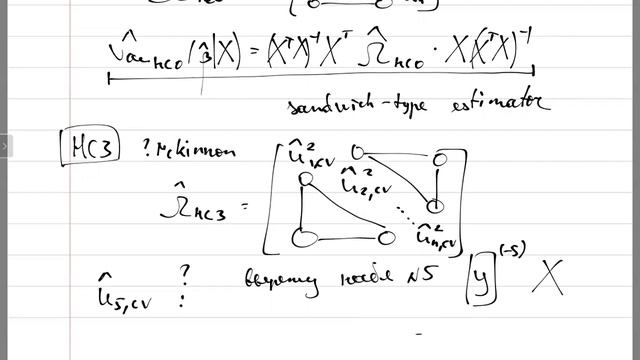 V̂ar_HC0(β̂|X) = (XᵀX)⁻¹Xᵀ Ω̂_HC0 · X(XᵀX)⁻¹
sandwich-type estimator
HC3 ? McKinnon
Ω̂_HC3 = [ û²₁,cv û²₂,cv ... û²ₙ,cv ]
û₅,cv ? : наблюд №5 y⁽⁻⁵⁾ X